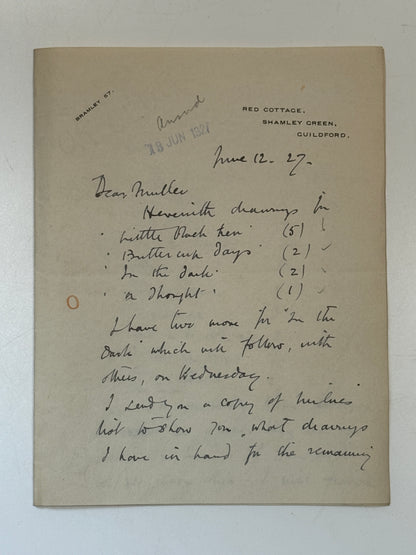 BRAMLEY 57.
Answd
18 JUN 1927
RED COTTAGE,
SHAMLEY GREEN,
GUILDFORD.
June 12. 27.
Dear Muller
Herewith drawings for
"Little Black Hen" (5)
"Buttercup Days" (2) ✓
"In the Dark" (2) ✓
"A Thought" (1) ✓
I have two more for "In the
Dark" which will follow, with
others, on Wednesday.
I send you a copy of Milne's
list to show you what drawings
I have in hand for the remaining